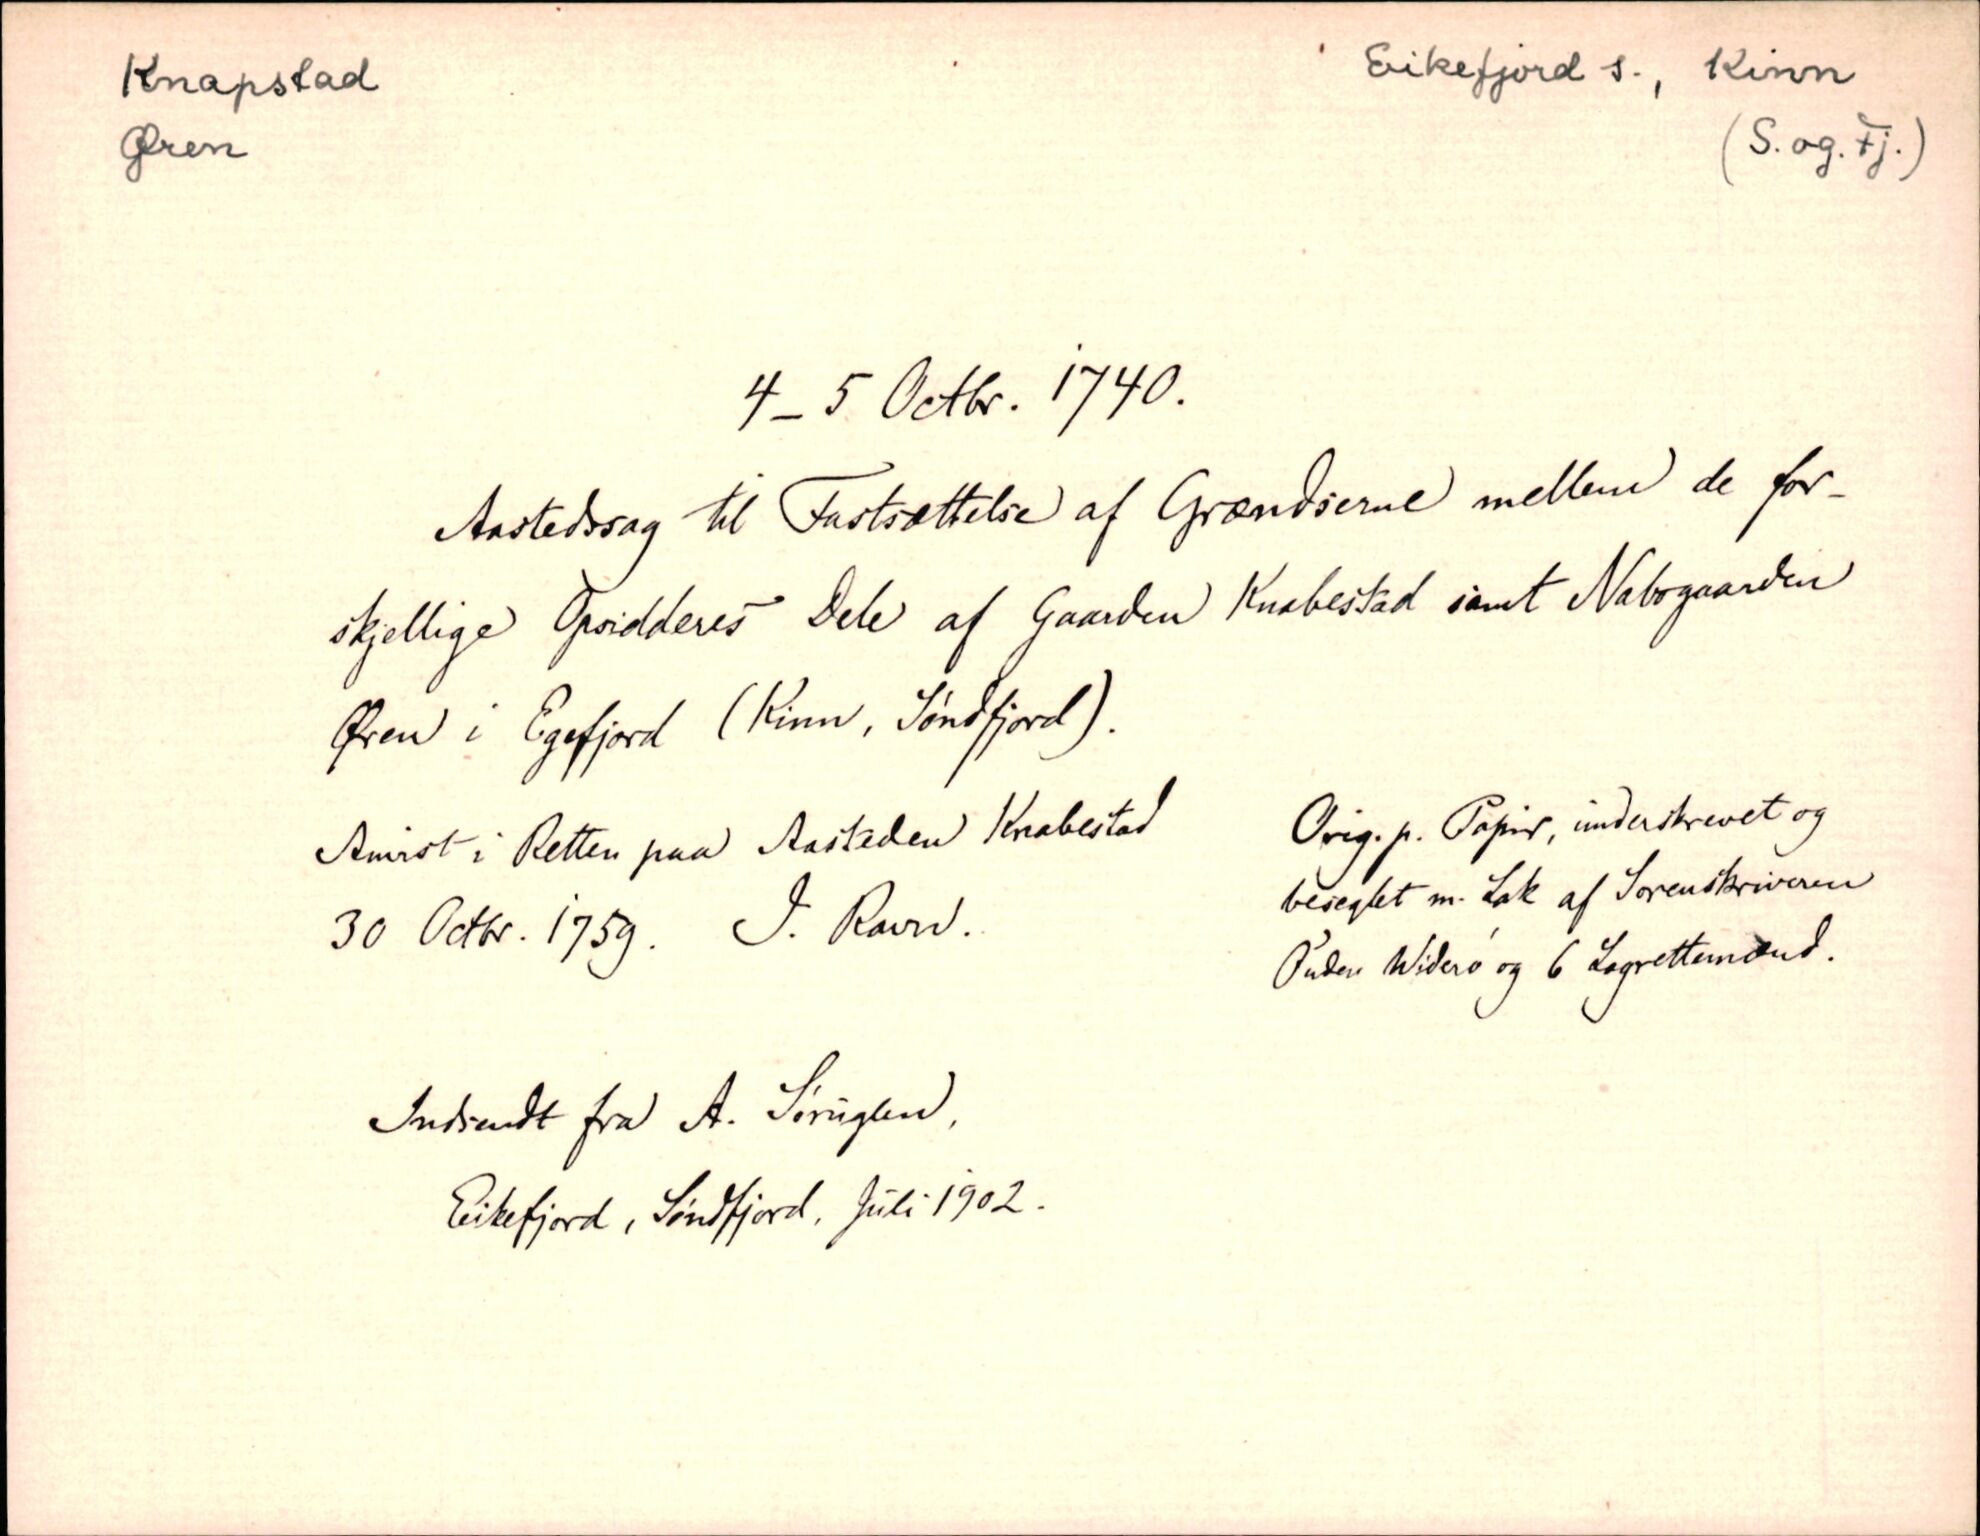 Knapstad
Øren
Eikefjord s., Kinn
(S. og. Fj.)
4-5 Octbr. 1740.
Aastedssag til Fastsættelse af Grændserne mellem de for-
skjellige Opsidderes Dele af Gaarden Knabestad samt Nabogaarden
Øren i Egefjord (Kinn, Søndfjord).
Anvist i Retten paa Aasteden Knabestad
30 Octbr. 1759. J. Ravn.
Orig. p. Papir, underskrevet og
beseglet m. Lak af Sorenskriveren
Widerø og 6 Lagrettemænd.
Indsendt fra A. Sørüglen,
Eikefjord, Søndfjord, Juli 1902.